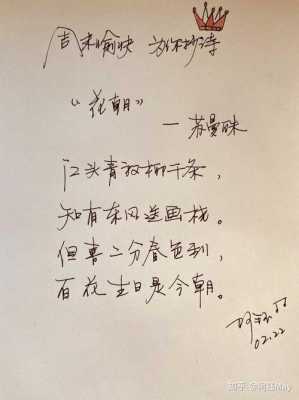 周末愉快 为你抄诗
“花朝”
— 苏曼殊
江头青放柳千条，
知有东风送画桡。
但喜二分春色到，
百花生日是今朝。
02.22
知乎 @阿钰May